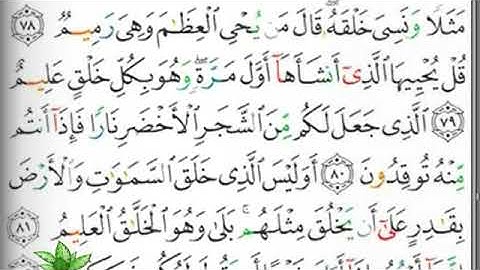 مَثَلًا وَنَسِىَ خَلْقَهُۥ ۖ قَالَ مَن يُحْىِ ٱلْعِظَٰمَ وَهِىَ رَمِيمٌ ٧٨
قُلْ يُحْيِيهَا ٱلَّذِىٓ أَنشَأَهَآ أَوَّلَ مَرَّةٍ ۖ وَهُوَ بِكُلِّ خَلْقٍ عَلِيمٌ
٧٩ ٱلَّذِى جَعَلَ لَكُم مِّنَ ٱلشَّجَرِ ٱلْأَخْضَرِ نَارًا فَإِذَآ أَنتُم
مِّنْهُ تُوقِدُونَ ٨٠ أَوَلَيْسَ ٱلَّذِى خَلَقَ ٱلسَّمَٰوَٰتِ وَٱلْأَرْضَ
بِقَٰدِرٍ عَلَىٰٓ أَن يَخْلُقَ مِثْلَهُم ۚ بَلَىٰ وَهُوَ ٱلْخَلَّٰقُ ٱلْعَلِيمُ ٨١